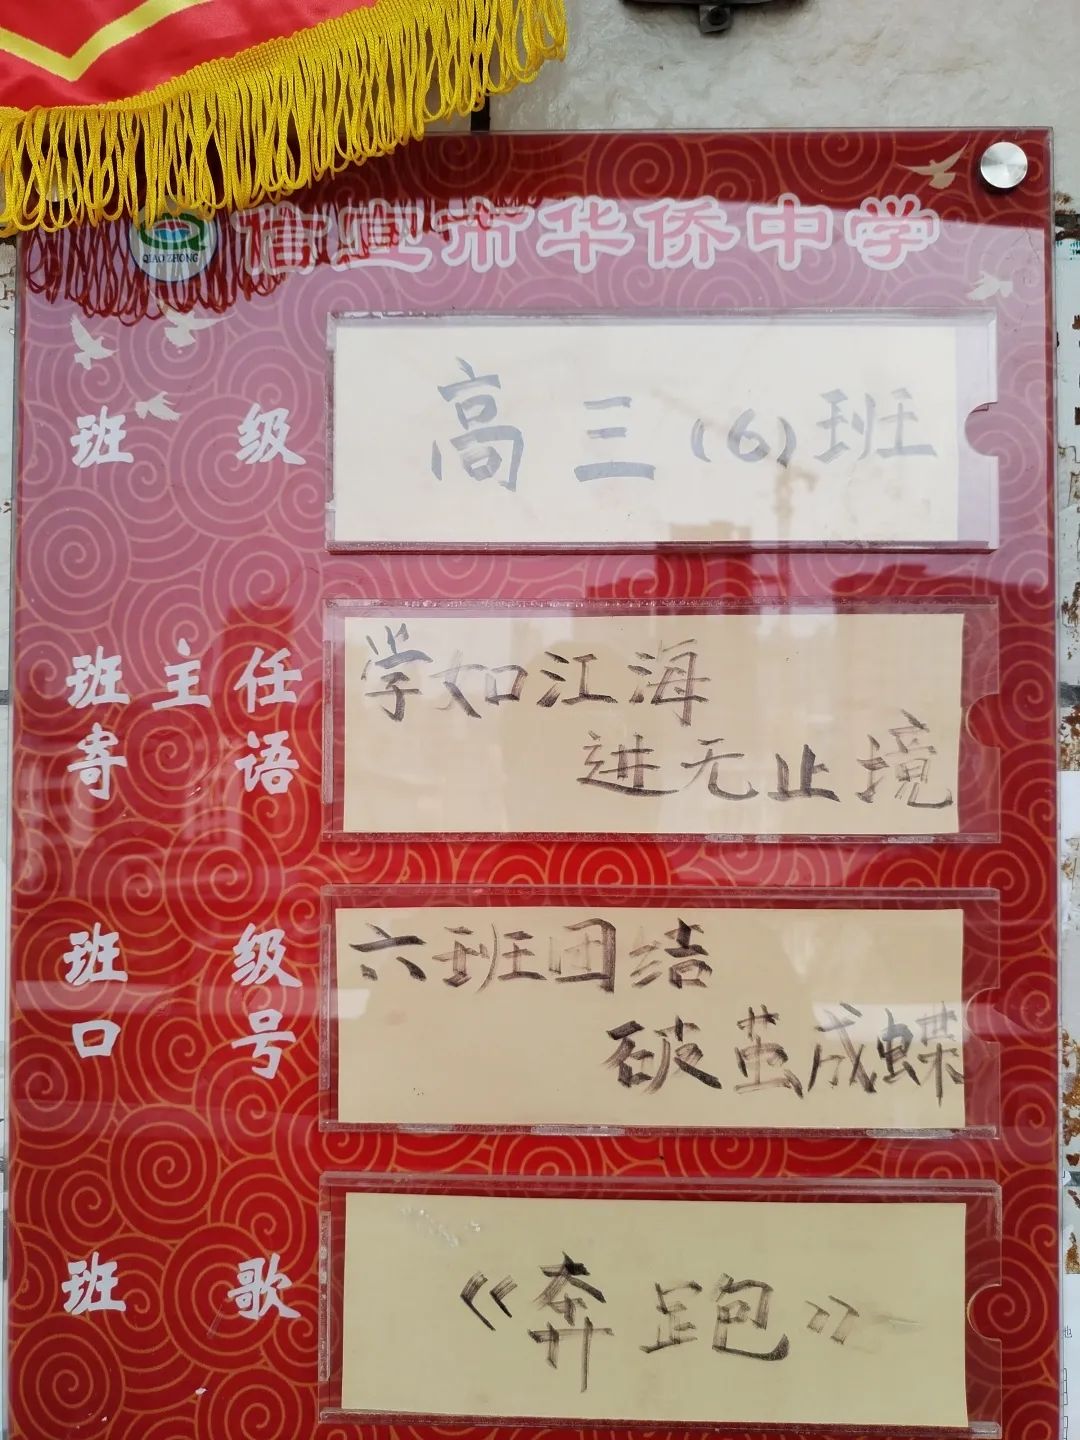 QIAO ZHONG
信宜市华侨中学
班级
高三(6)班
班主任
寄语
学如江海
进无止境
班级
口号
六班团结
破茧成蝶
班歌
《奔跑》